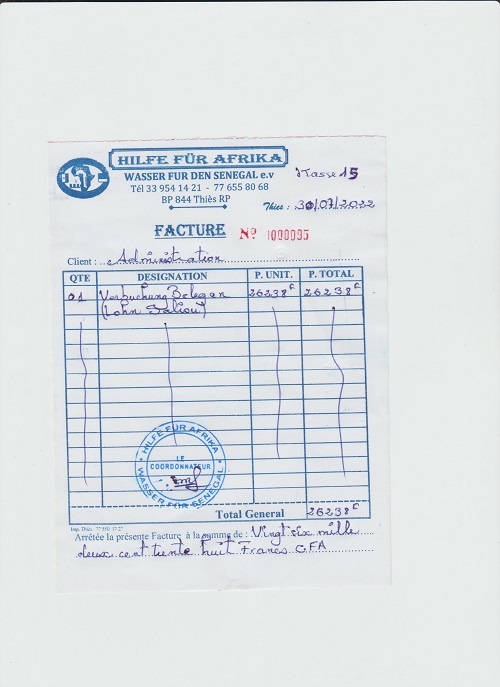 HILFE FÜR AFRIKA
WASSER FUR DEN SENEGAL e.v
Tél 33 954 14 21 - 77 655 80 68
BP 844 Thiès RP
Kasse 15
Thies : 30/07/2022
FACTURE Nº 0000095
Client : Administration
QTE DESIGNATION P. UNIT. P. TOTAL
01 Verbuchung Belegen 26238F 26238F
(Lohn Baliou)
HILFE FÜR AFRIKA
LE
COORDONNATEUR
WASSER FÜR SENEGAL
Total General 26238F
Imp. Thiès 77 550 37 27
Arrêtée la présente Facture à la somme de : Vingt six mille
deux cent trente huit Francs CFA